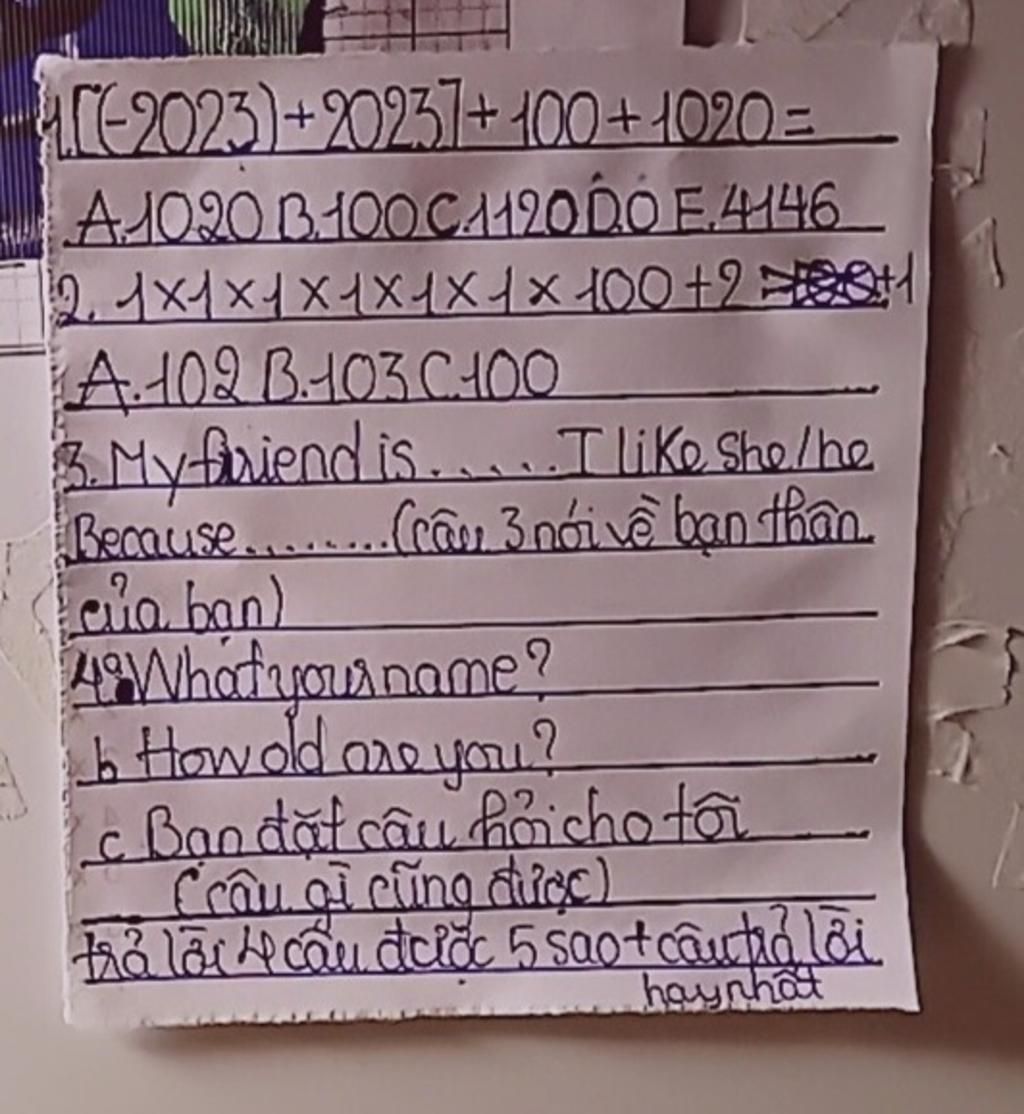 1.[(-2023)+2023]+100+1020=
A.1020 B.100 C.1120 D.0 E.4146
2. 1×1×1×1×1×1×100+2 +1
A.102 B.103 C.100
3. My friend is...... I like she/he
Because......... (câu 3 nói về bạn thân
của bạn)
4a. What your name?
b How old are you?
c Bạn đặt câu hỏi cho tôi
(câu gì cũng được)
trả lời 4 câu được 5 sao + câu trả lời
hay nhất